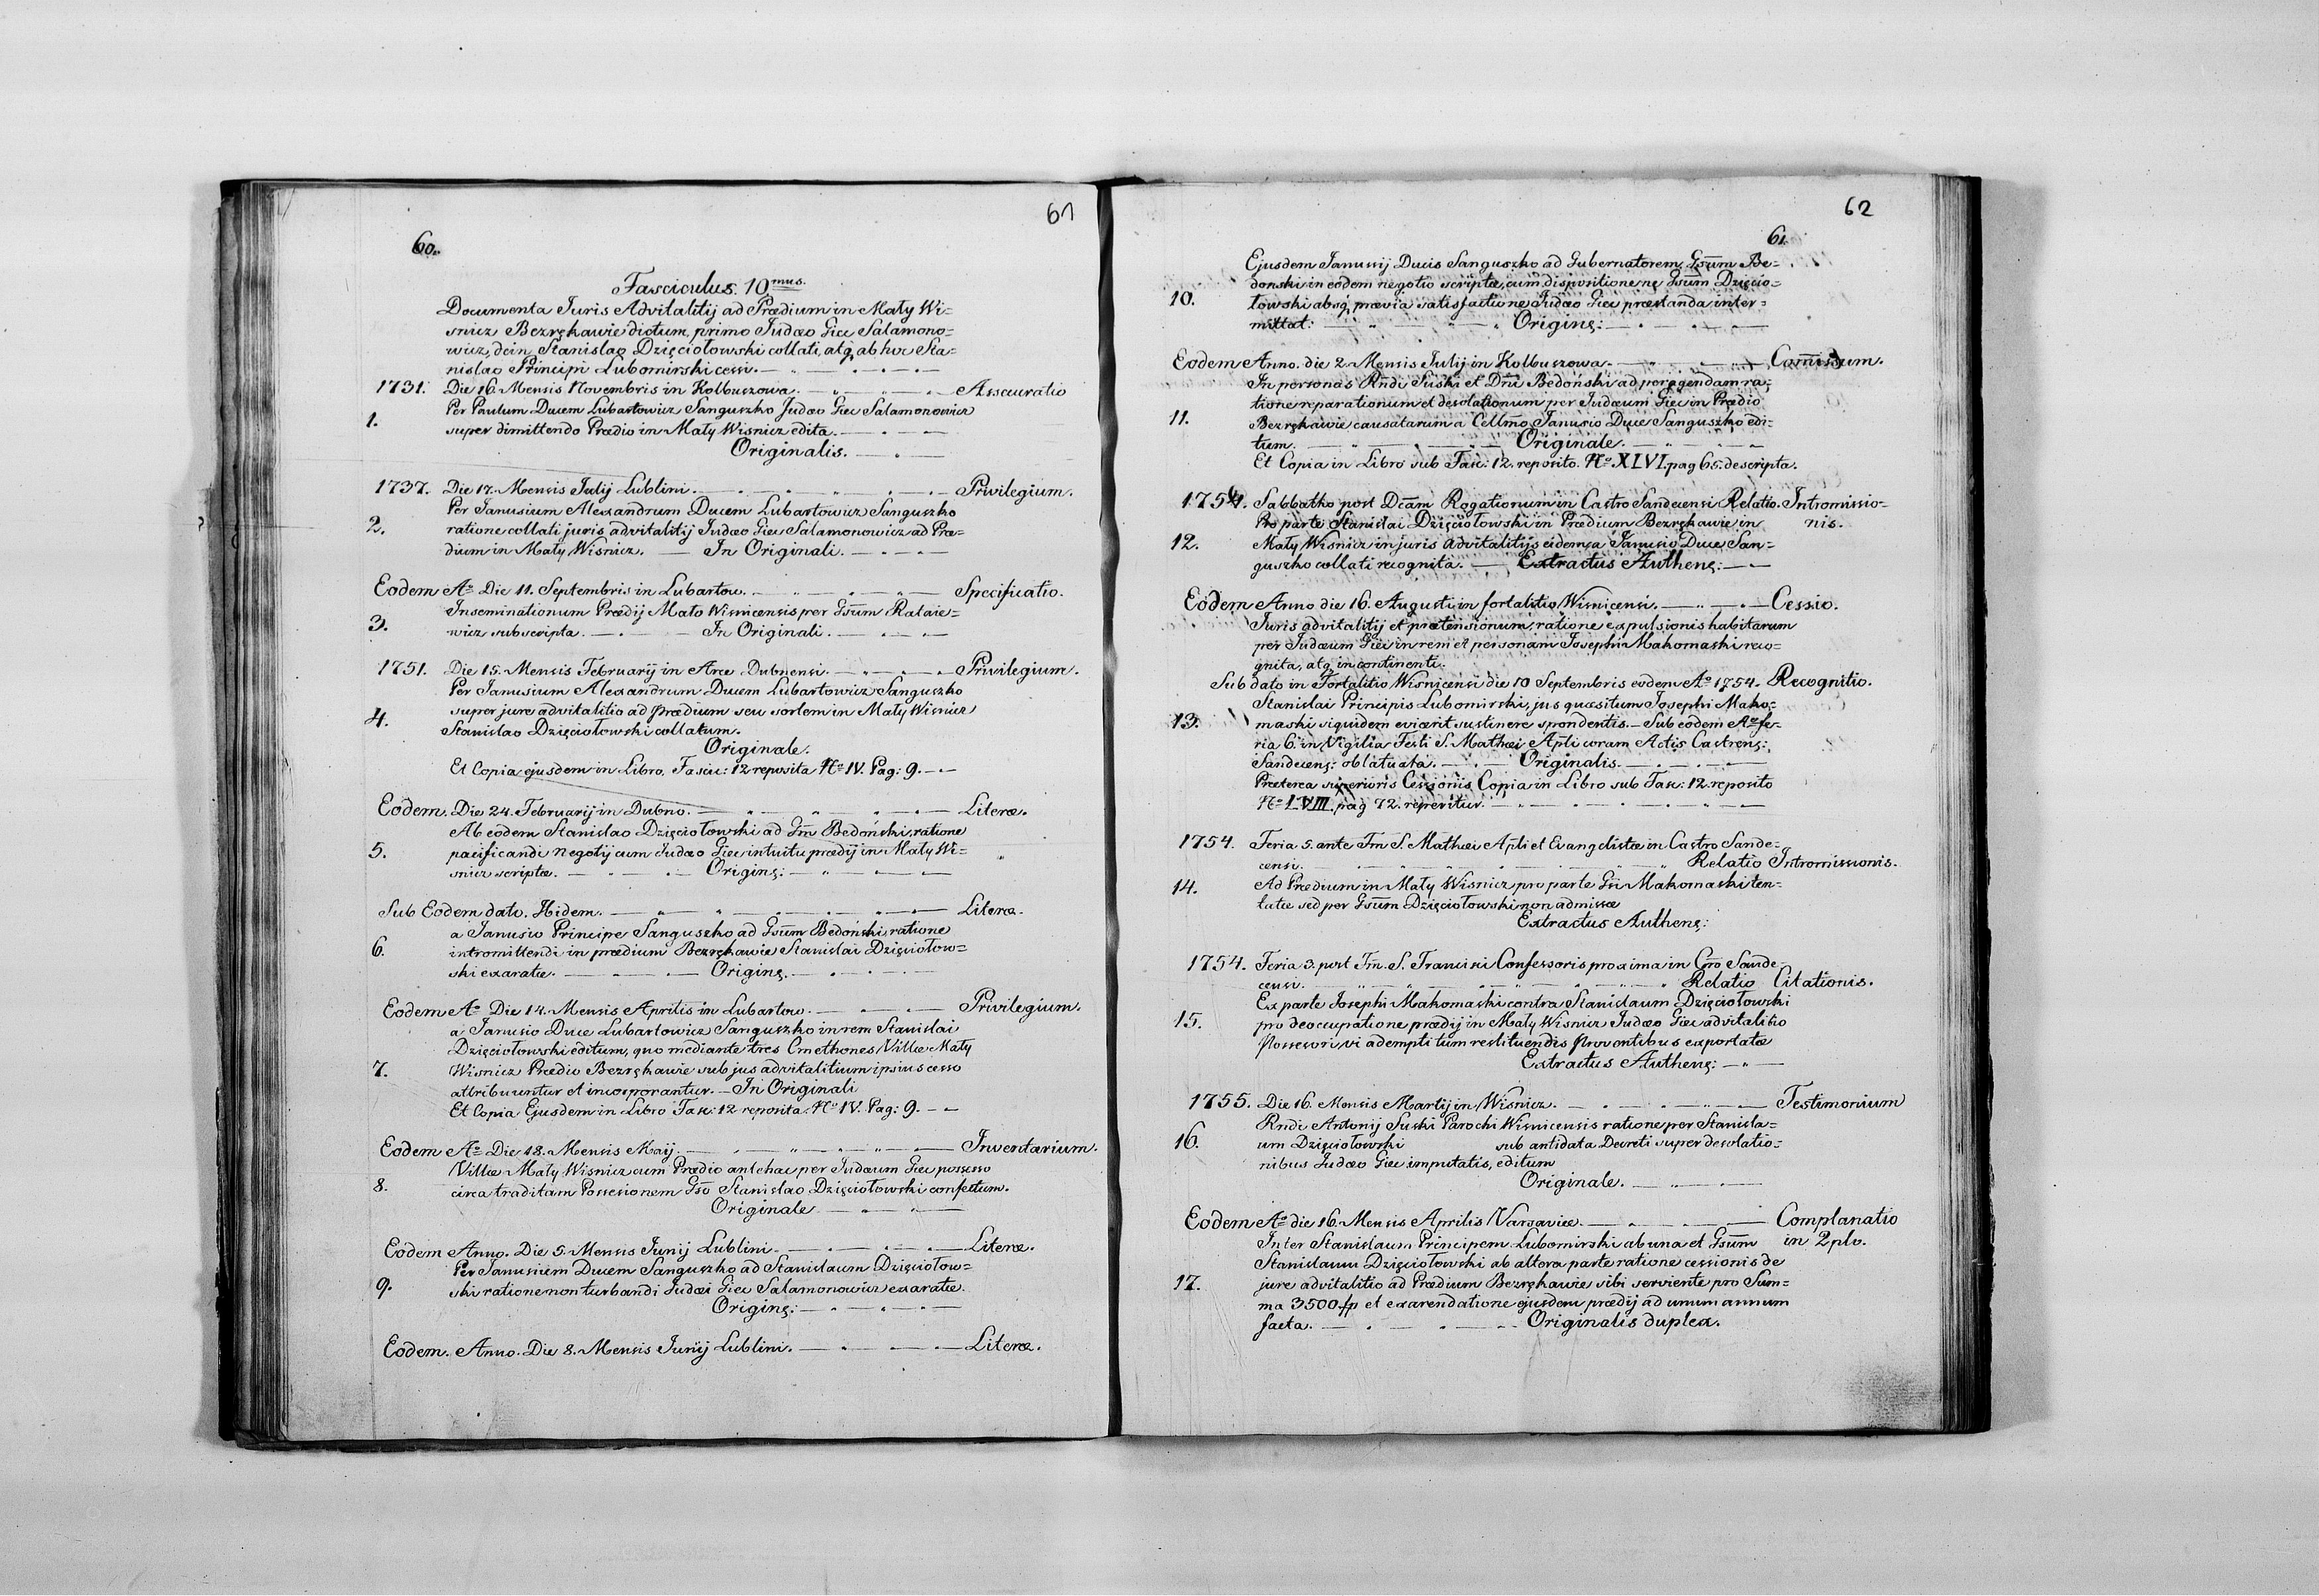 61
60.
Fasciculus. 10mus.
Documenta Juris Advitalitij ad Prædium in Mały Wi=
snicz Bezrękawie dictum, primo Judæo Giec Salamono=
wicz, dein Stanislao Dzięciołowski collati, atq ab hoc Sta=
nislao Principi Lubomirski cessi.
1731. Die 16. Mensis Novembris in Kolbuszowa. Assecuratio
Per Paulum Ducem Lubartowicz Sanguszko Judæo Giec Salamonowicz
1. super dimittendo Prædio in Mały Wisnicz edita.
Originalis.
1737. Die 17. Mensis Julij Lublini. Privilegium.
Per Janusium Alexandrum Ducem Lubartowicz Sanguszko
2. ratione collati juris advitalitij Judæo Giec Salamonowicz ad Præ=
dium in Mały Wisnicz. In Originali.
Eodem Ao Die 11. Septembris in Lubartow. Specificatio.
Inseminationum Prædij Mało Wisnicensis per Gsum Ralaie=
3. wicz subscripta. In Originali.
1751. Die 15. Mensis Februarij in Arce Dubnensi. Privilegium.
Per Janusium Alexandrum Ducem Lubartowicz Sanguszko
super jure advitalitio ad prædium seu sortem in Mały Wisnicz
4. Stanislao Dzięciołowski collatum.
Originale.
Et Copia ejusdem in Libro. Fascic: 12 reposita No IV. Pag: 9.
Eodem. Die 24. Februarij in Dubno. Literæ.
Ab eodem Stanislao Dzięciołowski ad Gm Bedoński, ratione
5. pacificandi negotij cum Judæo Giec intuitu prædij in Mały Wi=
snicz scriptæ. Origins:
Sub Eodem dato. Ibidem. Literæ.
a Janusio Principe Sanguszko ad Gsum Bedoński, ratione
6. intromittendi in prædium Bezrękawie Stanislai Dzięciołow=
ski exaratæ. Origins.
Eodem Ao Die 14. Mensis Aprilis in Lubartow. Privilegium.
a Janusio Duce Lubartowicz Sanguszko in rem Stanislai
Dzięciołowski editum, quo mediante tres Cmethones Villæ Mały
7. Wisnicz Prædio Bezrękawie sub jus advitalitium ipsius cesso
attribuuntur et incorporantur. In Originali
Et Copia Ejusdem in Libro Fasc: 12 reposita No IV. Pag: 9.
Eodem Ao Die 18. Mensis Maij. Inventarium.
Villæ Mały Wisnicz cum Prædio antehac per Judæum Giec possesso
8. circa traditam Possesionem Gso Stanislao Dzięciołowski confectum.
Originale
Eodem Anno. Die 5. Mensis Junij Lublini. Literæ.
Per Janusium Ducem Sanguszko ad Stanislaum Dzięciołow=
9. ski ratione non turbandi Judæi Giec Salamonowicz exaratæ.
Origins:
Eodem. Anno. Die 8. Mensis Junij Lublini. Literæ.
62
61.
Ejusdem Janusij Ducis Sanguszko ad Gubernatorem Gsum Be=
donski in eodem negotio scriptæ, cum dispositione ne Gsum Dzięcio=
10. łowski absq prævia satisfactione Judæo Giec præstanda inter=
mittat. Origins:
Eodem Anno. die 2. Mensis Julij in Kolbuszowa. Comissum.
In personas Rndi Suski et Dni Bedoński ad peragendam ra=
tione reparationum et desolationum per Judæum Giec in Prædio
11. Bezrękawie causatarum a Cellmo Janusio Duce Sanguszko edi=
tum. Originale.
Et Copia in Libro sub Fasc: 12. reposito. No XLVI. pag 65. descripta.
1754. Sabbatho post Dcam Rogationum in Castro Sandecensi Relatio. Intromissio=
Pro parte Stanislai Dzięciołowski in Prædium Bezrękawie in nis.
12. Mały Wisnicz in juris advitalitij eidem a Janusio Duce San=
guszko collati recognita. Extractus Authens:
Eodem Anno die 16. Augusti in fortalitio Wisnicensi. Cessio.
Juris advitalitij et prætensionum, ratione expulsionis habitarum
per Judæum Giec in rem et personam Josephi Makomaski reco=
gnita, atq in continenti.
Sub dato in Fortalitio Wisnicensi die 10 Septembris eodem Ao 1754. Recognitio.
Stanislai Principis Lubomirski, jus quæsitum Josephi Mako=
13. maski siquidem evicerit sustinere spondentis. Sub eodem Ao fe=
ria 6. in Vigilia Festi S. Mathæi Apli coram Actis Castrens:
Sandecens: oblatuata. Originalis.
Præterea superioris Cessionis Copia in Libro sub Fasc: 12. reposito
No LVIII. pag 72. reperitur.
1754. Feria 5. ante Fm S. Mathæi Apli et Evangelistæ in Castro Sande=
censi. Relatio Intromissionis.
14. Ad Prædium in Mały Wisnicz pro parte Gsi Makomaski ten=
tatæ sed per Gsum Dzięciołowski non admissæ
Extractus Authens:
1754. Feria 3. post Fm. S. Francisci Confessoris proxima in Cro Sande=
censi. Relatio Citationis.
Ex parte Josephi Makomaski contra Stanislaum Dzięciołowski
15. pro deoccupatione prædij in Mały Wisnicz Judæo Giec advitalitio
Possesori vi adempti tum restituendis proventibus exportatæ
Extractus Authens:
1755. Die 16. Mensis Martij in Wisnicz. Testimonium
Rndi Antonij Suski Parochi Wisnicensis ratione per Stanisla=
16. um Dzięciołowski sub antidata Decreti super desolatio=
nibus Judæo Giec imputatis, editum
Originale.
Eodem Ao die 16. Mensis Aprilis Varsaviæ. Complanatio
Inter Stanislaum Principem Lubomirski ab una et Gsum in 2plo.
Stanislaum Dzięciołowski ab altera parte ratione cessionis de
17. jure advitalitio ad Prædium Bezrękawie sibi serviente pro Sum=
ma 3500 fp et exarendatione ejusdem prædij ad unum annum
facta. Originalis duplex.